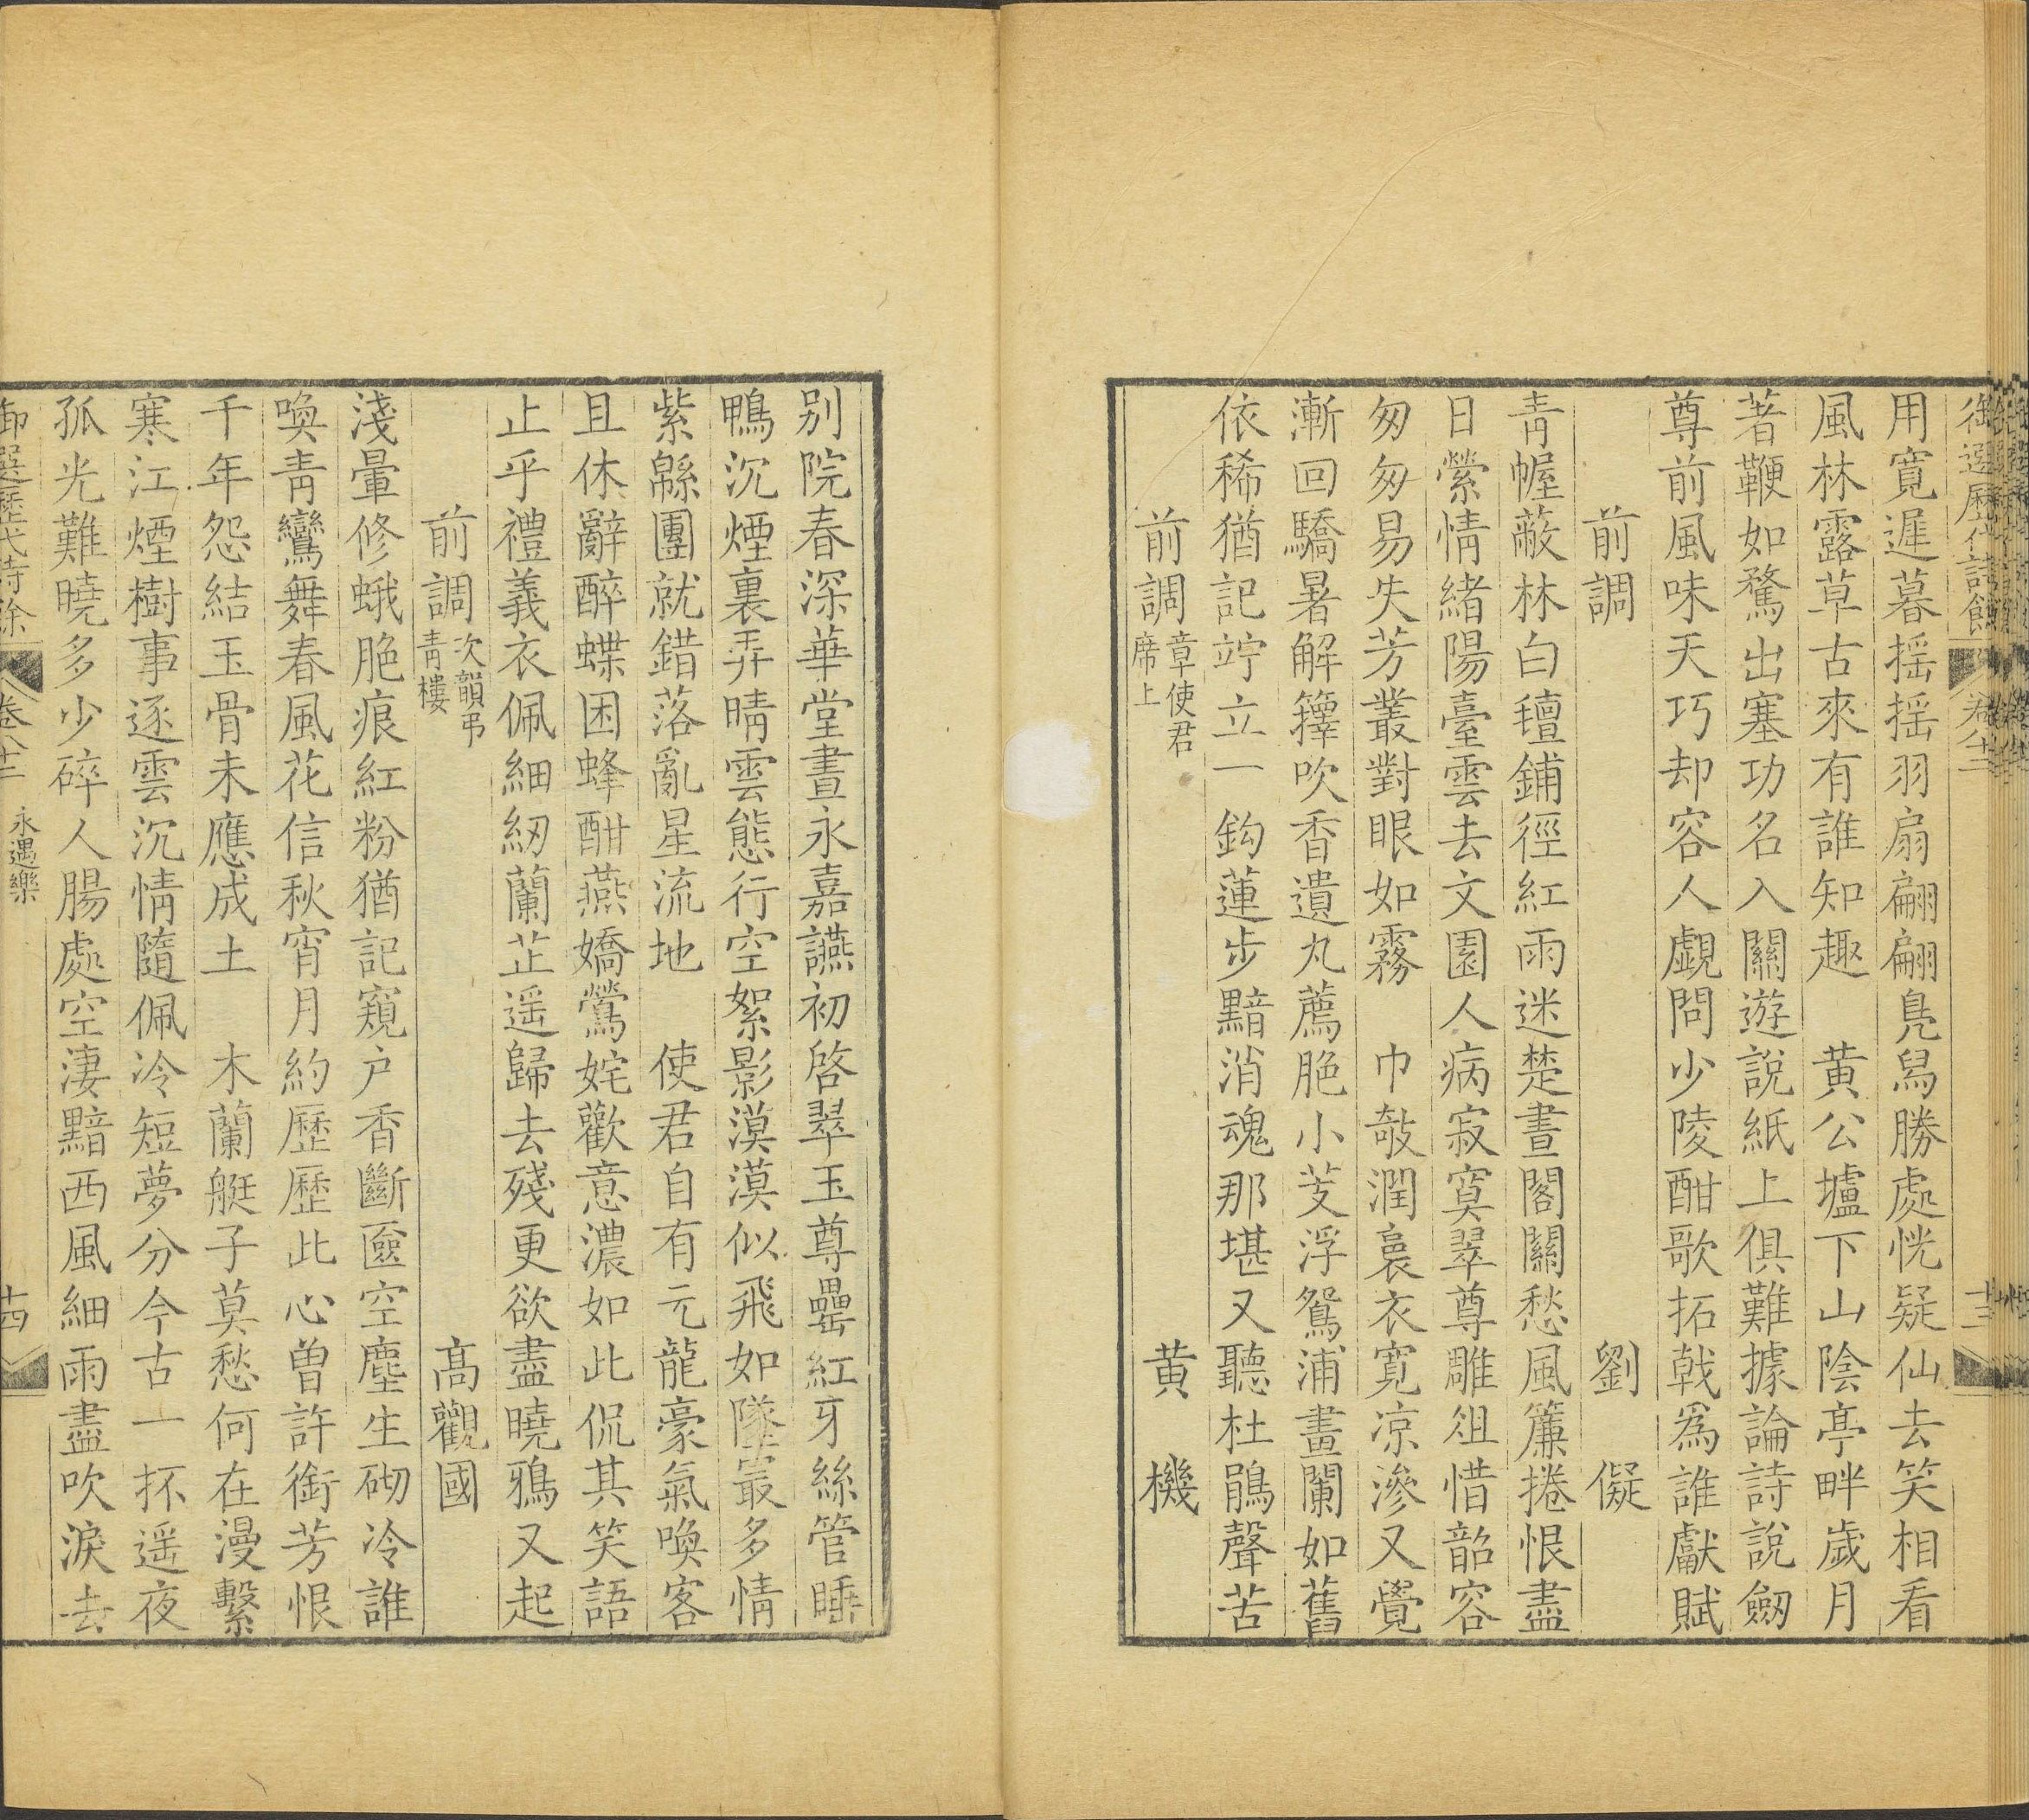 御選歷代詩餘 卷八十二 十三
用寬遲暮揺揺羽扇翩翩鳧舄勝處恍疑仙去笑相看
風林露草古來有誰知趣 黄公壚下山陰亭畔歲月
著鞭如騖出塞功名入關遊說紙上俱難據論詩說劒
尊前風味天巧却容人覷問少陵酣歌拓戟爲誰獻賦
前調 劉儗
青幄蔽林白氊鋪徑紅雨迷楚晝閣關愁風簾捲恨盡
日縈情緒陽臺雲去文園人病寂寞翠尊雕俎惜韶容
匆匆易失芳叢對眼如霧 巾敧潤裛衣寛凉滲又覺
漸回驕暑解籜吹香遺丸薦脃小芰浮鴛浦畫闌如舊
依稀猶記竚立一鈎蓮步黯消魂那堪又聽杜鵑聲苦
前調 章使君席上 黄機
别院春深華堂晝永嘉讌初啓翠玉尊罍紅牙絲管睡
鴨沉煙裏弄晴雲態行空絮影漠漠似飛如墜最多情
紫緜團就錯落亂星流地 使君自有元龍豪氣喚客
且休辭醉蝶困蜂酣燕嬌鶯姹歡意濃如此侃其笑語
止乎禮義衣佩細紉蘭芷遥歸去殘更欲盡曉鴉又起
前調 次韻弔青樓 高觀國
淺暈修蛾脃痕紅粉猶記窺户香斷匳空塵生砌冷誰
喚青鸞舞春風花信秋宵月約歷歷此心曾許銜芳恨
千年怨結玉骨未應成土 木蘭艇子莫愁何在漫繫
寒江煙樹事逐雲沉情隨佩冷短夢分今古一抔遥夜
孤光難曉多少碎人腸處空淒黯西風細雨盡吹淚去
御選歷代詩餘 卷八十二 永遇樂 十四